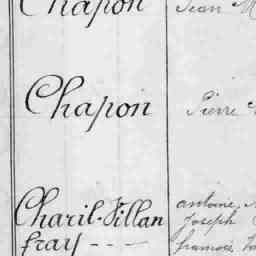 Chapon Jean
Chapon Pierre
Charil-Villan antoine,
fray - - - Joseph
francois